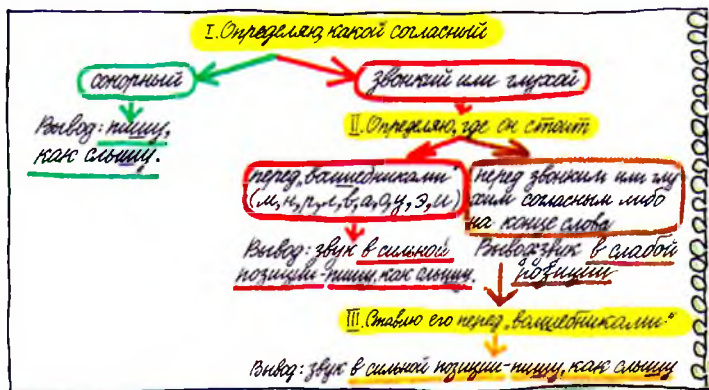 I. Определяю, какой согласный
сонорный
звонкий или глухой
Вывод: пишу,
как слышу.
II. Определяю, где он стоит
перед „волшебниками"
(м, н, р, л, в, а, о, у, э, и)
перед звонким или глу
хим согласным либо
на конце слова
Вывод: звук в сильной
позиции - пишу, как слышу.
Вывод: звук в слабой
позиции
III. Ставлю его перед „волшебниками"
Вывод: звук в сильной позиции - пишу, как слышу